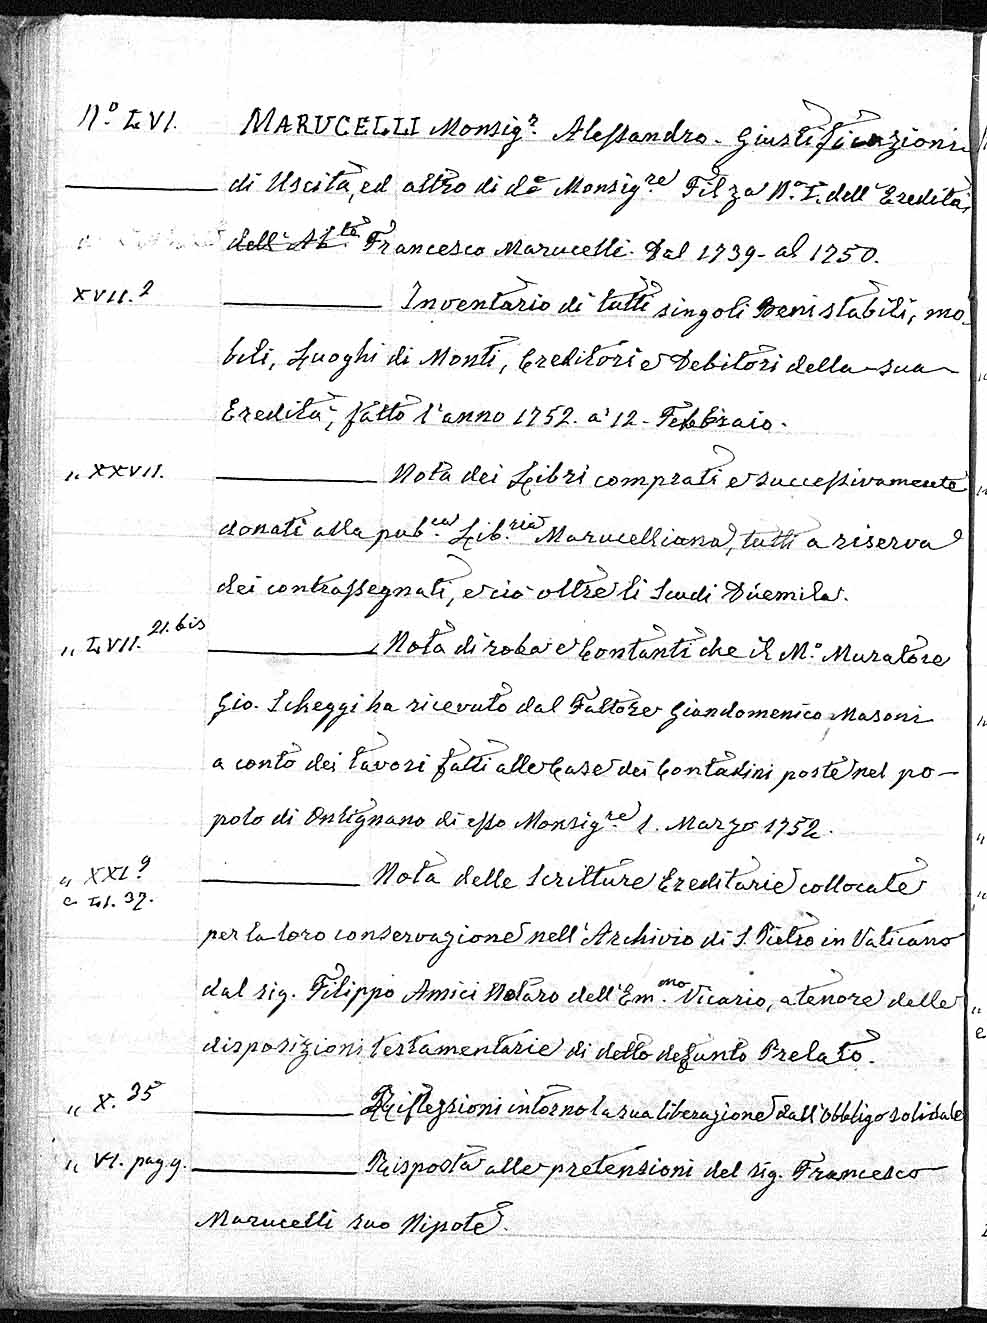 N.º LVI. MARUCELLI Monsig.r Alessandro. Giustificazioni
di Uscita, ed altro di d.o Monsig.re Filza N.º I. dell'Eredità
dell'Ab.te Francesco Marucelli. Dal 1739. al 1750.
XVII.2 Inventario di tutti singoli Beni stabili, mo-
bili, Luoghi di Monti, Creditori e Debitori della sua
Eredità, fatto l'anno 1752. a' 12. Febbraio.
" XXVII. Nota dei Libri comprati e successivamente
donati alla pub.ca Lib.ria Marucelliana, tutti a riserva
dei contrassegnati, e ciò oltre li Scudi Duemila.
" LVII. 21. bis Nota di roba e Contanti che il M.º Muratore
Gio. Scheggi ha ricevuto dal Fattore Giandomenico Masoni
a conto dei lavori fatti alle Case dei Contadini poste nel po-
polo di Ontignano di esso Monsig.re 1. Marzo 1752.
" XXI.9 Nota delle Scritture Ereditarie collocate
e LI. 37.
per la loro conservazione nell'Archivio di S. Pietro in Vaticano
dal sig. Filippo Amici Notaro dell'Em.mo Vicario, a tenore delle
disposizioni testamentarie di detto defunto Prelato.
" X. 35 Riflessioni intorno la sua liberazione dall'obbligo solidale
" VI. pag. 9. Risposta alle pretensioni del sig. Francesco
Marucelli suo Nipote.